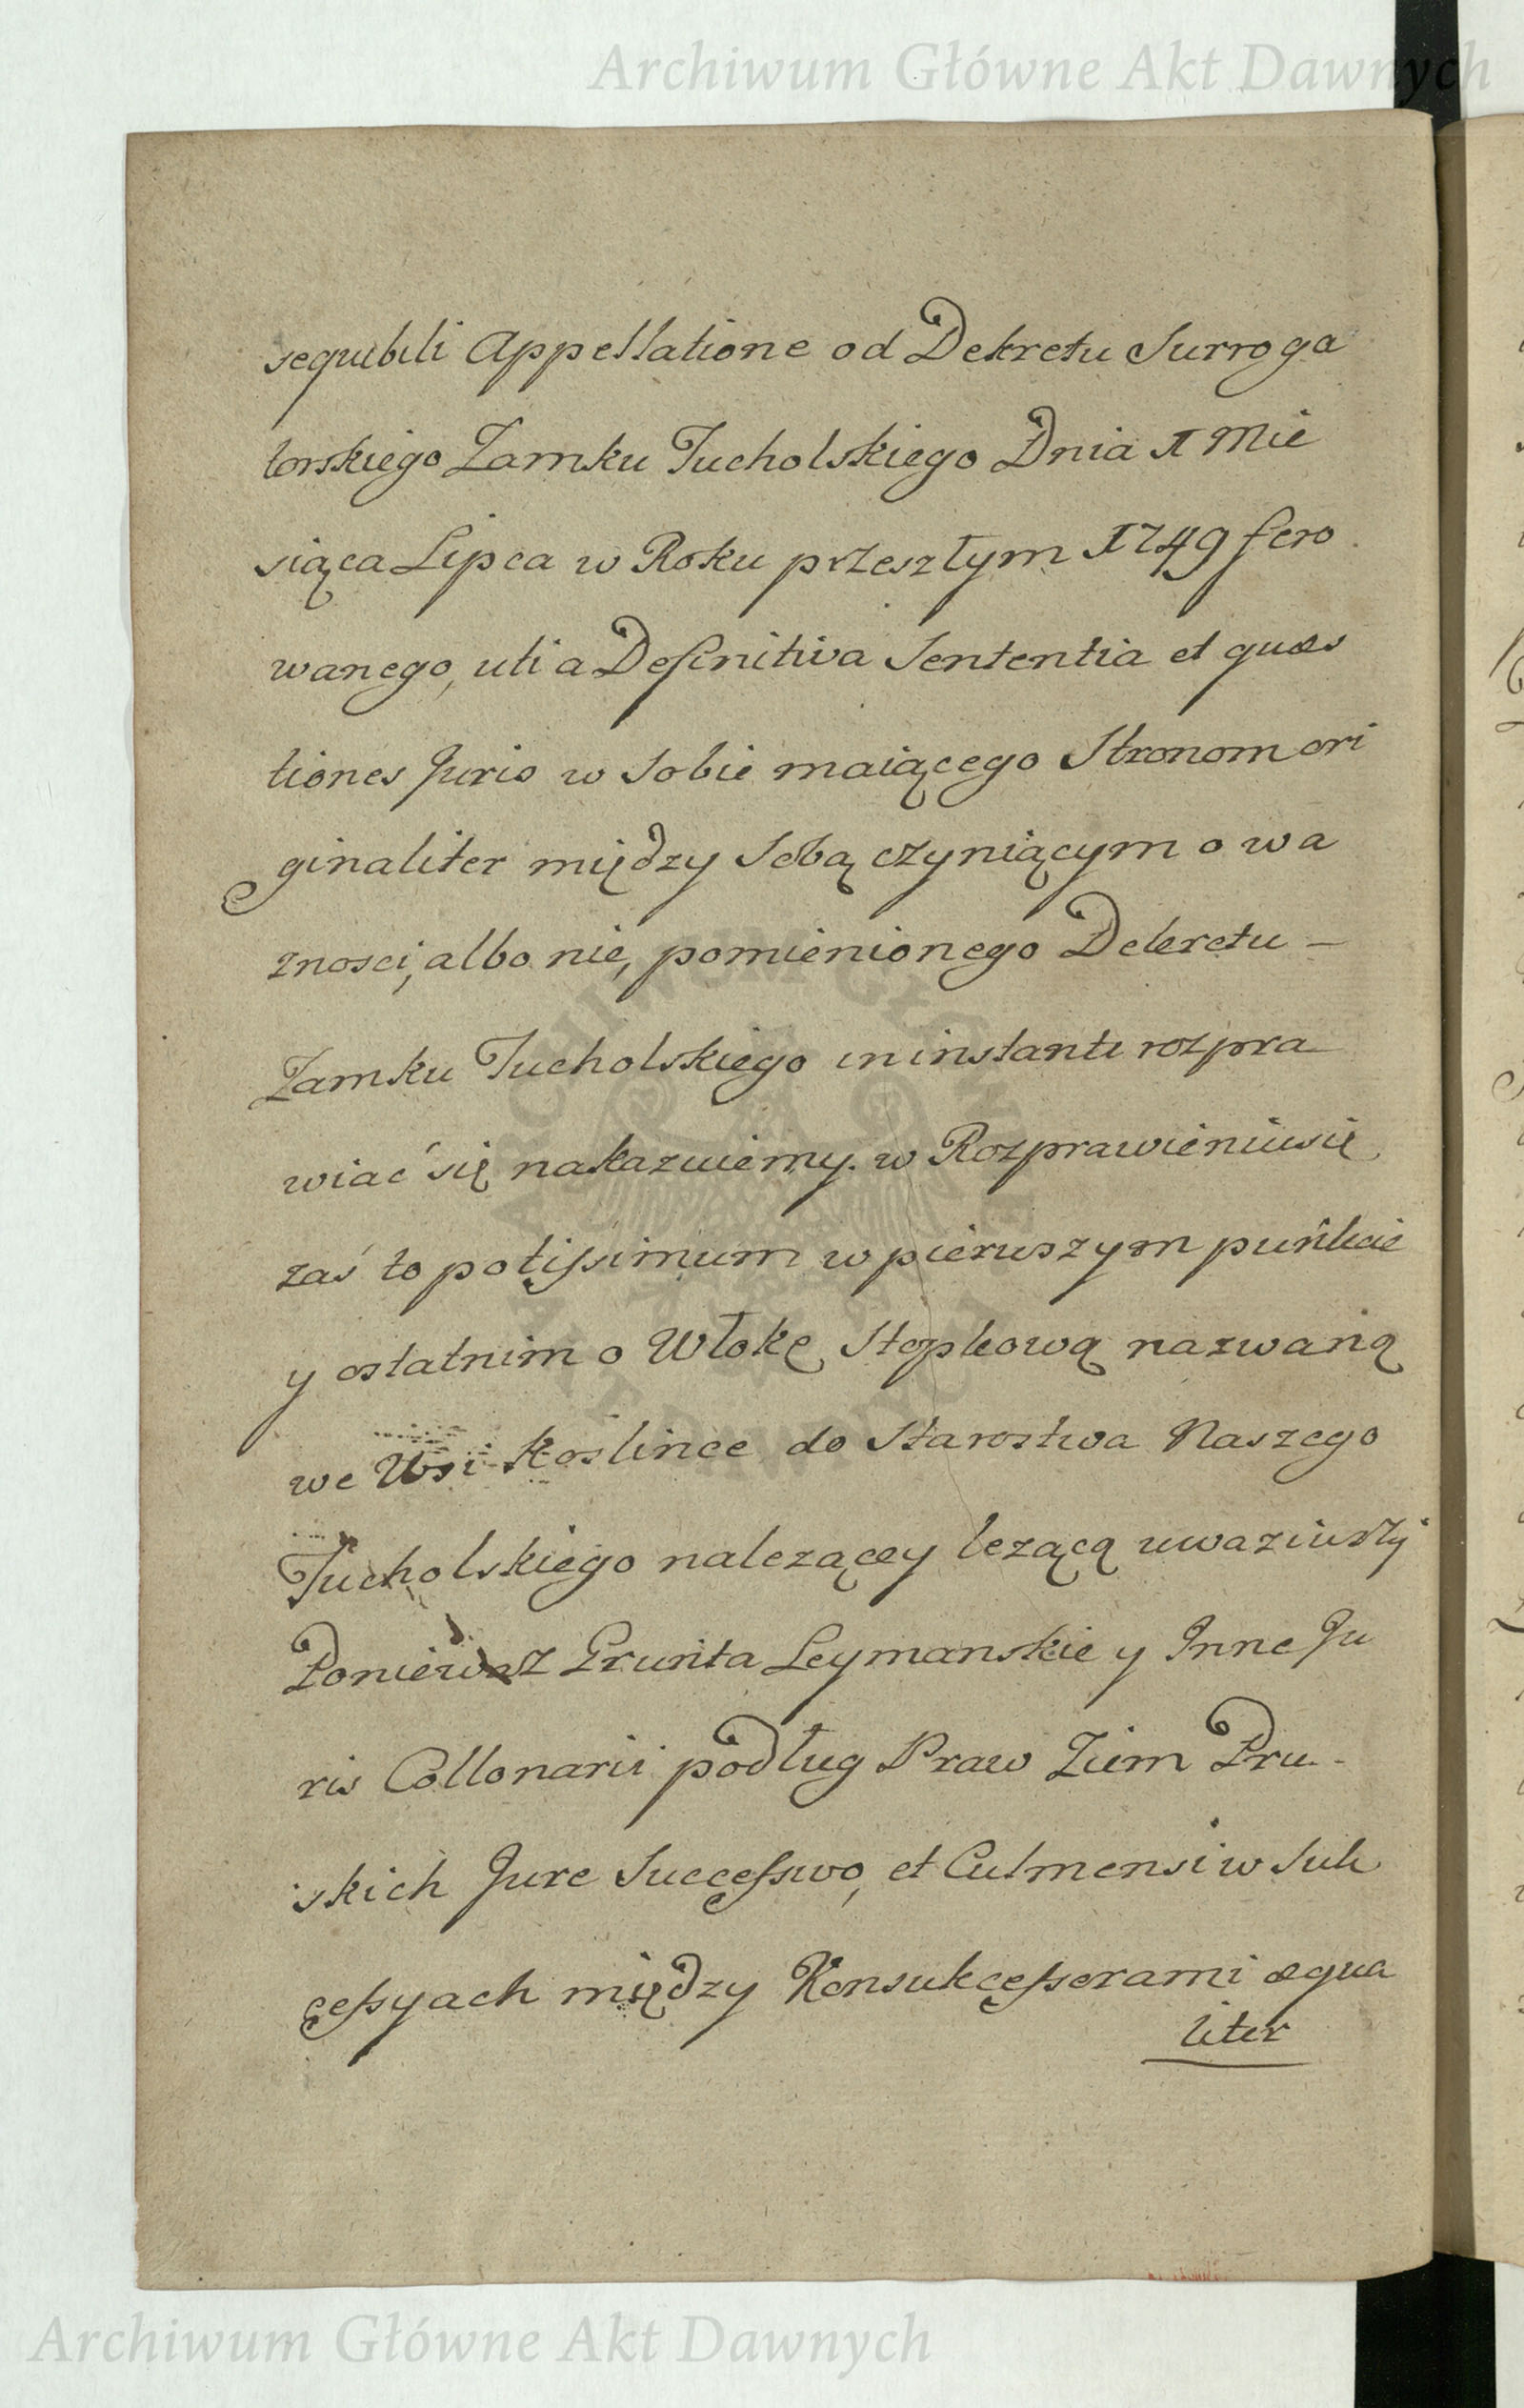 Archiwum Główne Akt Dawnych
sequibili Appellatione od Dekretu Surroga
torskiego Zamku Tucholskiego Dnia 1 Mie
siąca Lipca w Roku przeszłym 1749 fero
wanego, uti a Definitiva Sententia et quæs
tiones Juris w sobie maiącego Stronom ori
ginaliter między Sobą czyniącym o wa
znosci, albo nie, pomienionego Dekretu –
Zamku Tucholskiego in instanti rozpra
wiać się nakazuiemy. w Rozprawieniu się
zaś to potissimum w pierwszym punkcie
y ostatnim o Włokę nazwaną
we Wsi Koslince do Starostwa Naszego
Tucholskiego nalezącey lezącą uwaziwszy
Poniewasz Grunta Leymanskie y Inne Ju
ris Collonarii podług Praw Ziem Pru-
skich Jure Successivo, et Culmensi w Suk
cessyach między Konsukcessorami æqua
liter
ARCHIWUM GŁÓWNE AKT DAWNYCH
Archiwum Główne Akt Dawnych